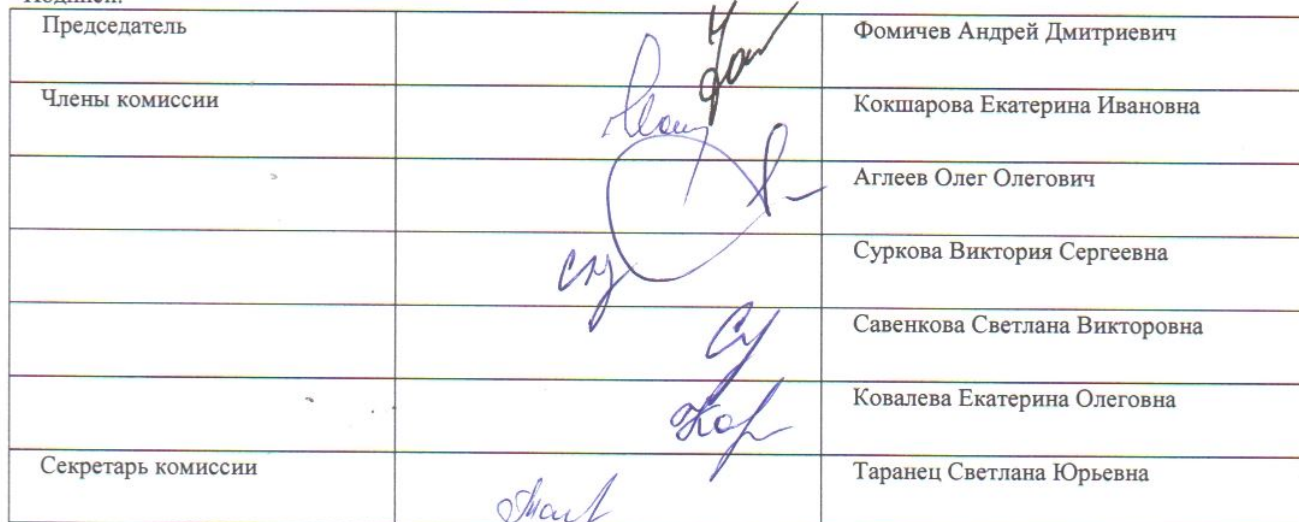 Председатель Фомичев Андрей Дмитриевич
Члены комиссии Кокшарова Екатерина Ивановна
Аглеев Олег Олегович
Суркова Виктория Сергеевна
Савенкова Светлана Викторовна
Ковалева Екатерина Олеговна
Секретарь комиссии Таранец Светлана Юрьевна